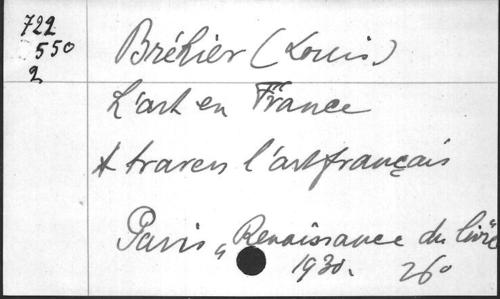 722
550
2
Bréhier (Louis)
L'art en France
A travers l'art français
Paris, Renaissance du livre
1930. 26°